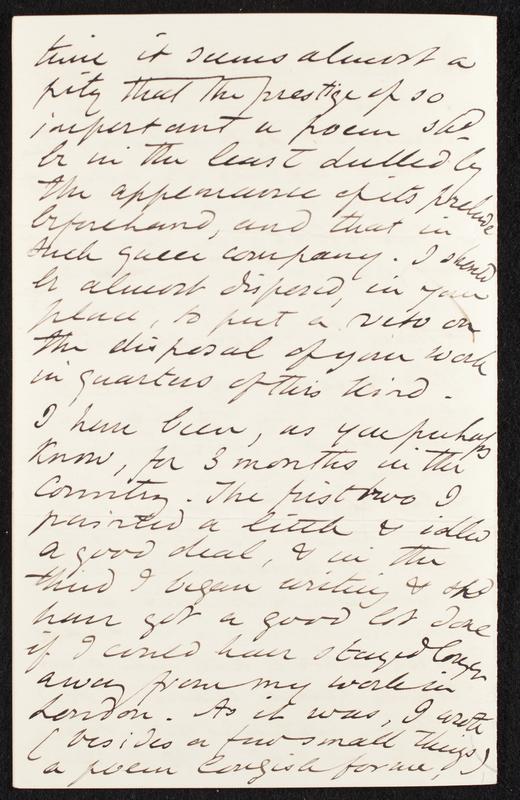 time it seems almost a
pity that the prestige of so
important a poem shd
be in the least dulled by
the appearance of its prelude
beforehand, and that in
such queer company. I should
be almost disposed, in your
place, to put a veto on
the disposal of your work
in quarters of this kind.
I have been, as you perhaps
know, for 3 months in the
country. The first two I
painted a little & idled
a good deal, & in the
third I began writing & shd
have got a good lot done
if I could have stayed longer
away from my work in
London. As it was, I wrote
(besides a few small things)
a poem longish for me,